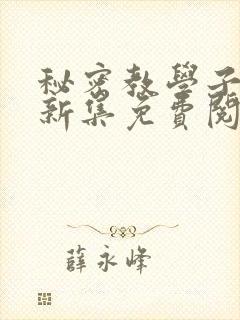 秘密教學子
新集免費閱
薛永峰